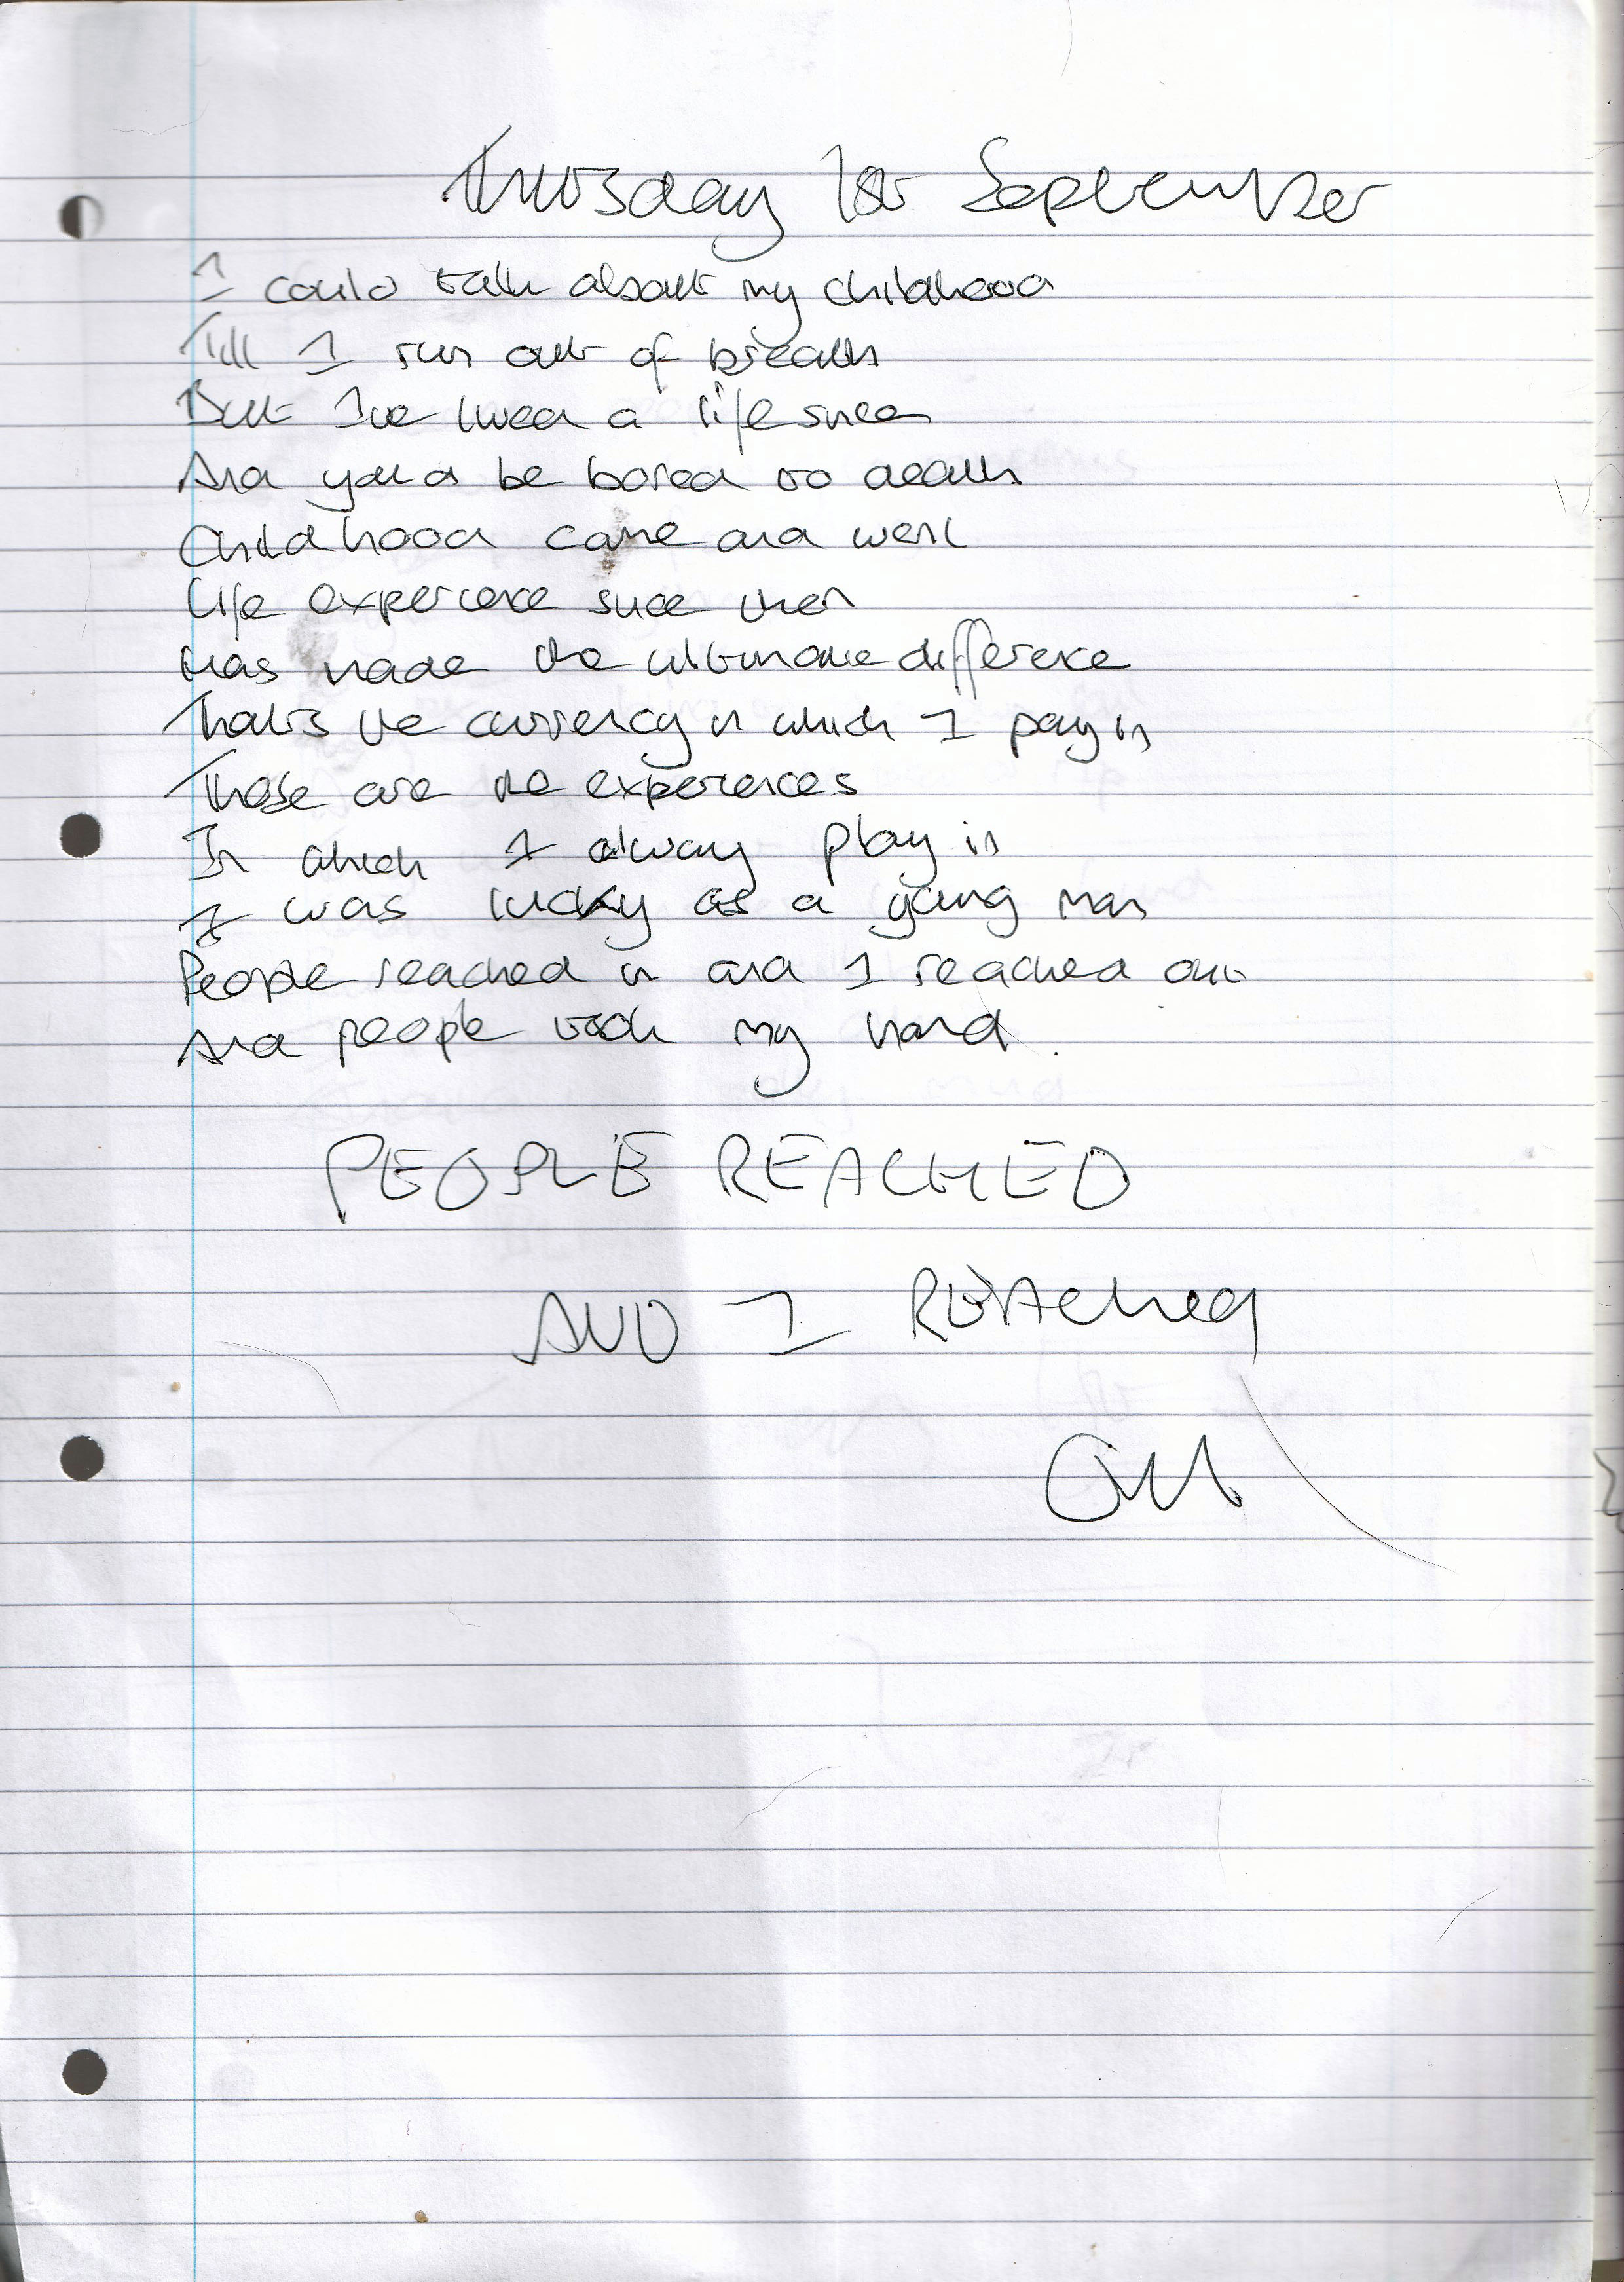 Thursday 1st September
I could talk about my childhood
Till I run out of breath
But I've lived a life since
And you'd be bored to death
Childhood came and went
Life experience since then
Has made the ultimate difference
That's the currency in which I pay in
Those are the experiences
In which I always play in
I was lucky as a young man
People reached in and I reached out
And people took my hand.
PEOPLE REACHED
AND I REACHed
OUT